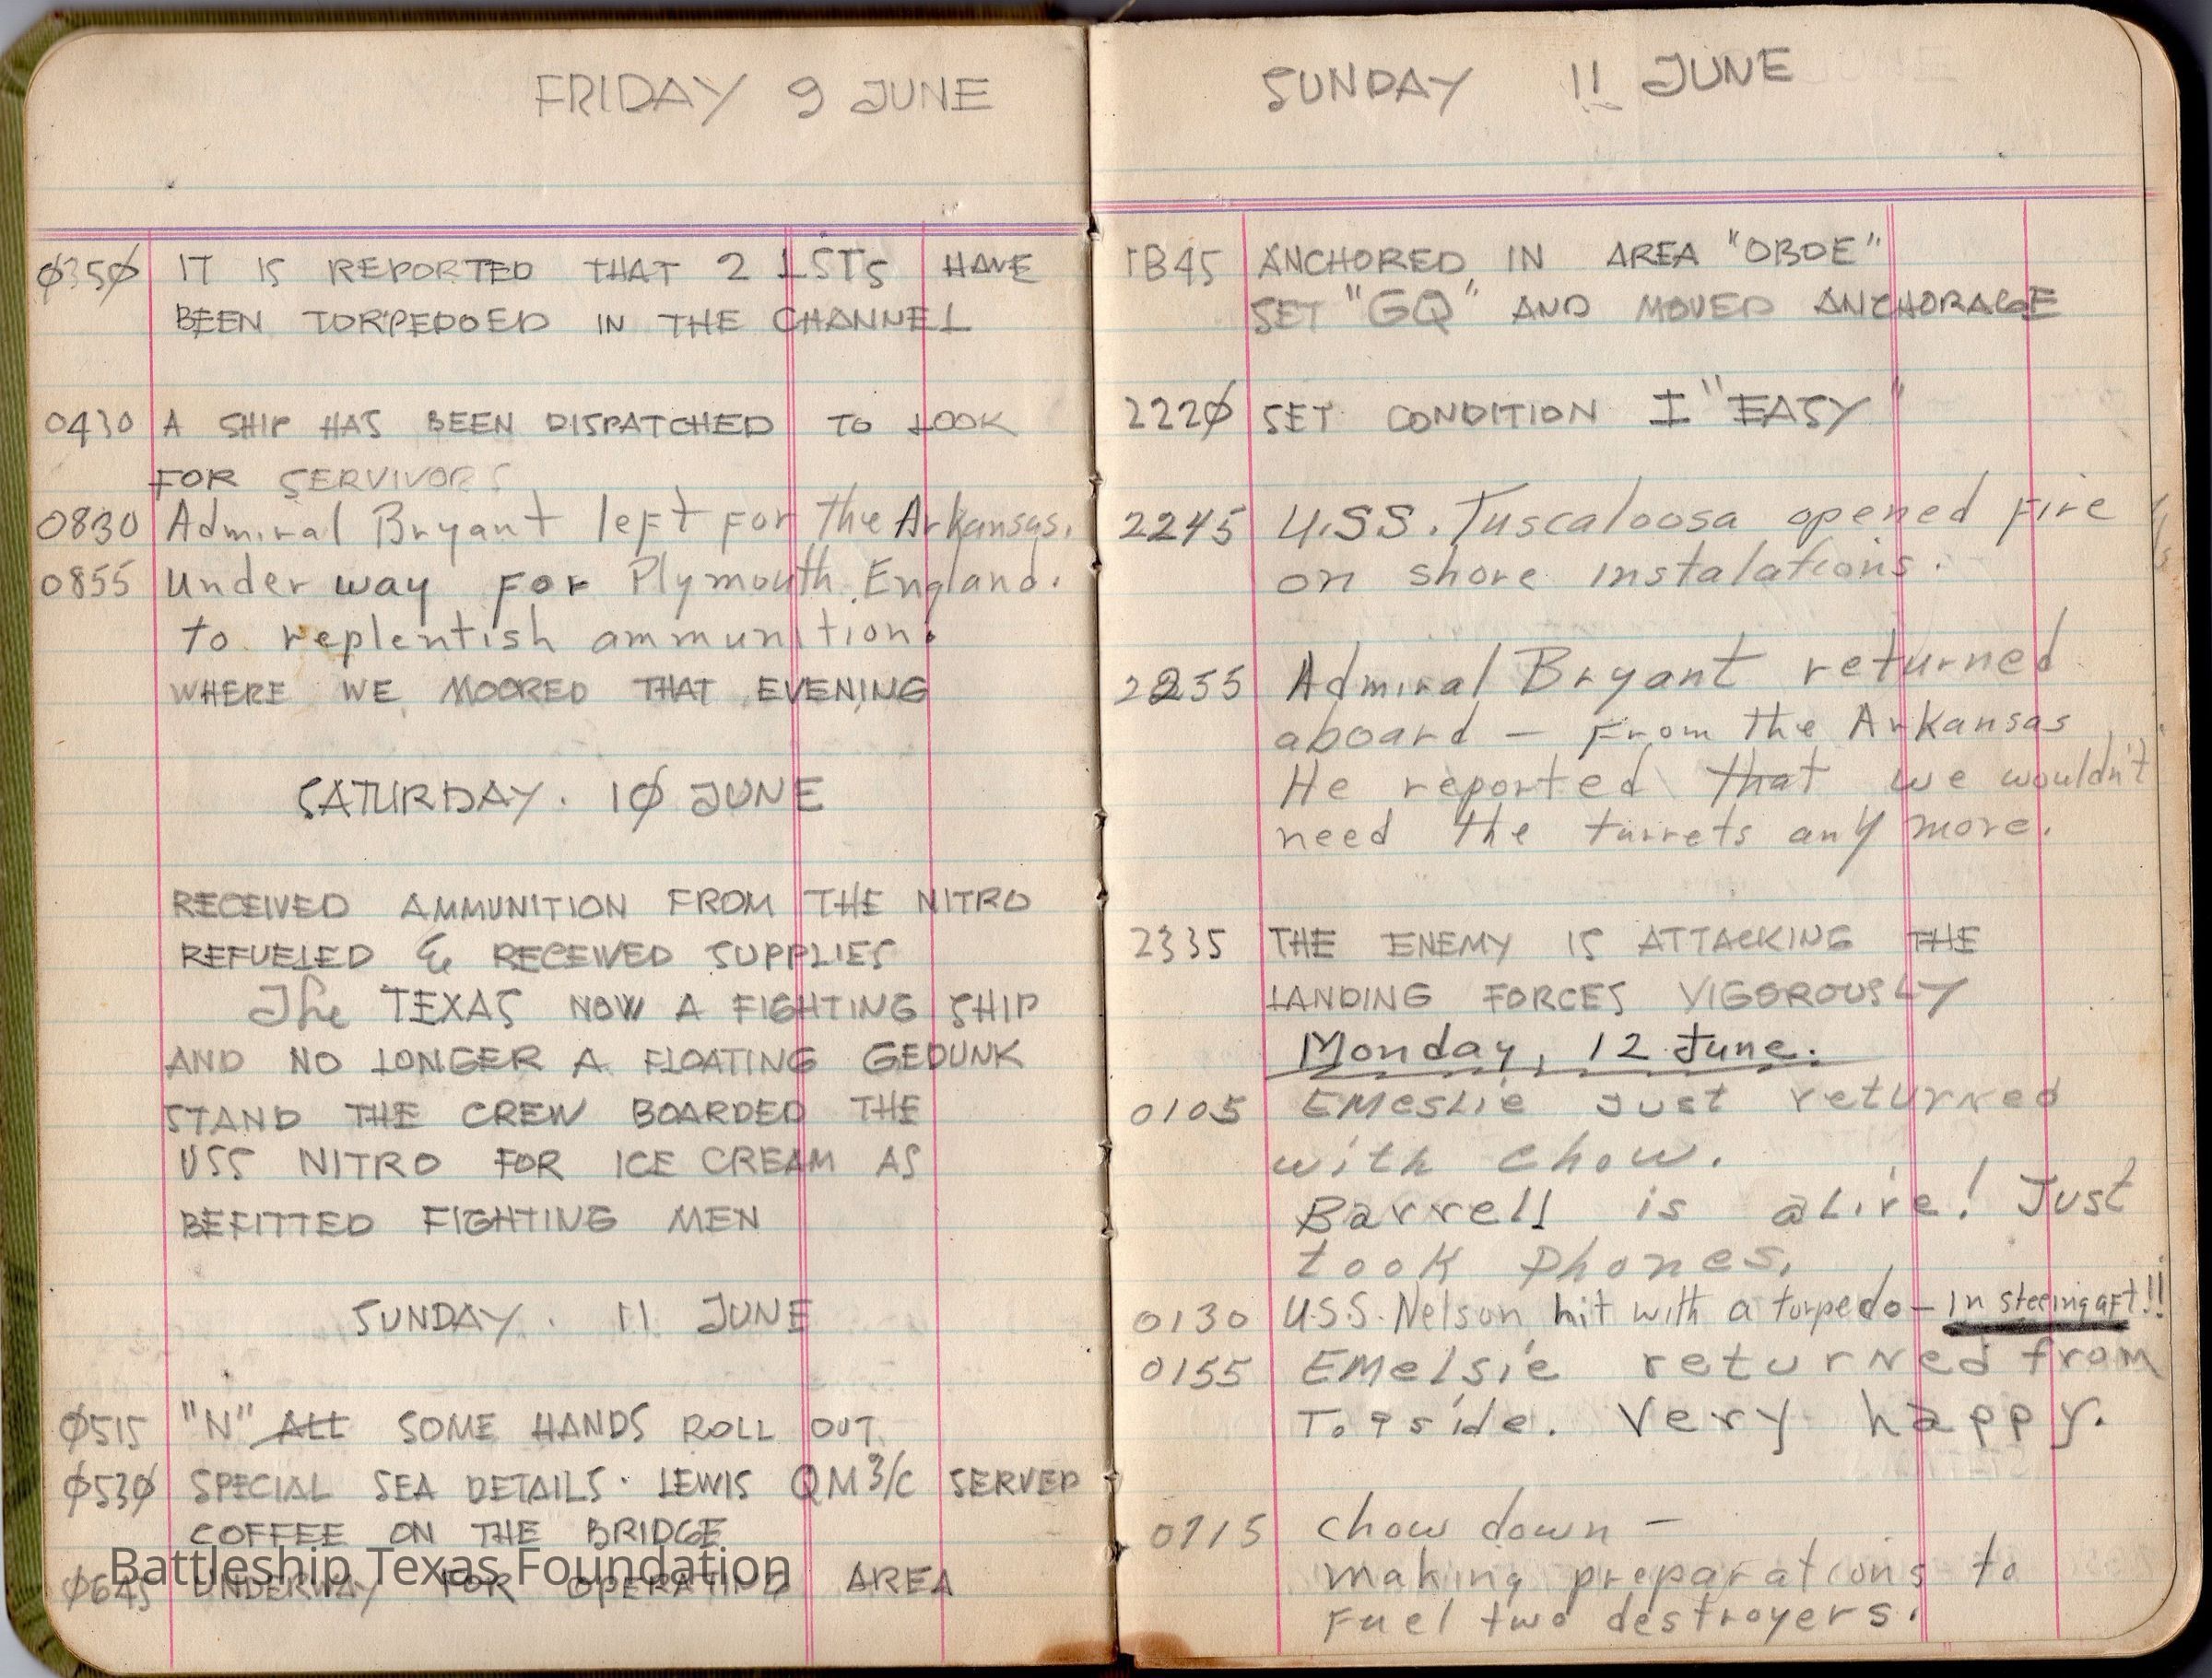 FRIDAY 9 JUNE
Ø35Ø IT IS REPORTED THAT 2 LSTs HAVE
BEEN TORPEDOED IN THE CHANNEL
0430 A SHIP HAS BEEN DISPATCHED TO LOOK
FOR SERVIVORS
0830 Admiral Bryant left for the Arkansas.
0855 Under way for Plymouth, England.
to replentish ammunition.
WHERE WE MOORED THAT EVENING
SATURDAY. 1Ø JUNE
RECEIVED AMMUNITION FROM THE NITRO
REFUELED & RECEIVED SUPPLIES
The TEXAS NOW A FIGHTING SHIP
AND NO LONGER A FLOATING GEDUNK
STAND THE CREW BOARDED THE
USS NITRO FOR ICE CREAM AS
BEFITTED FIGHTING MEN
SUNDAY. 11 JUNE
Ø515 "N" ALL SOME HANDS ROLL OUT
Ø53Ø SPECIAL SEA DETAILS. LEWIS QM 3/C SERVED
COFFEE ON THE BRIDGE
Battleship Texas Foundation
Ø645 UNDERWAY FOR OPERATING AREA
SUNDAY 11 JUNE
1845 ANCHORED IN AREA "OBOE"
SET "GQ" AND MOVED ANCHORAGE
222Ø SET CONDITION I "EASY"
2245 U.S.S. Tuscaloosa opened fire
on shore instalations.
2255 Admiral Bryant returned
aboard - From the Arkansas
He reported that we wouldn't
need the turrets any more.
2335 THE ENEMY IS ATTACKING THE
LANDING FORCES VIGOROUSLY
Monday, 12 June.
0105 EMeslie Just returned
with chow.
Barrell is alive! Just
took phones.
0130 U.S.S. Nelson hit with a torpedo - In steeing aft!!
0155 EMelsie returned from
Topside. Very happy.
0715 chow down -
making preparations to
Fuel two destroyers.